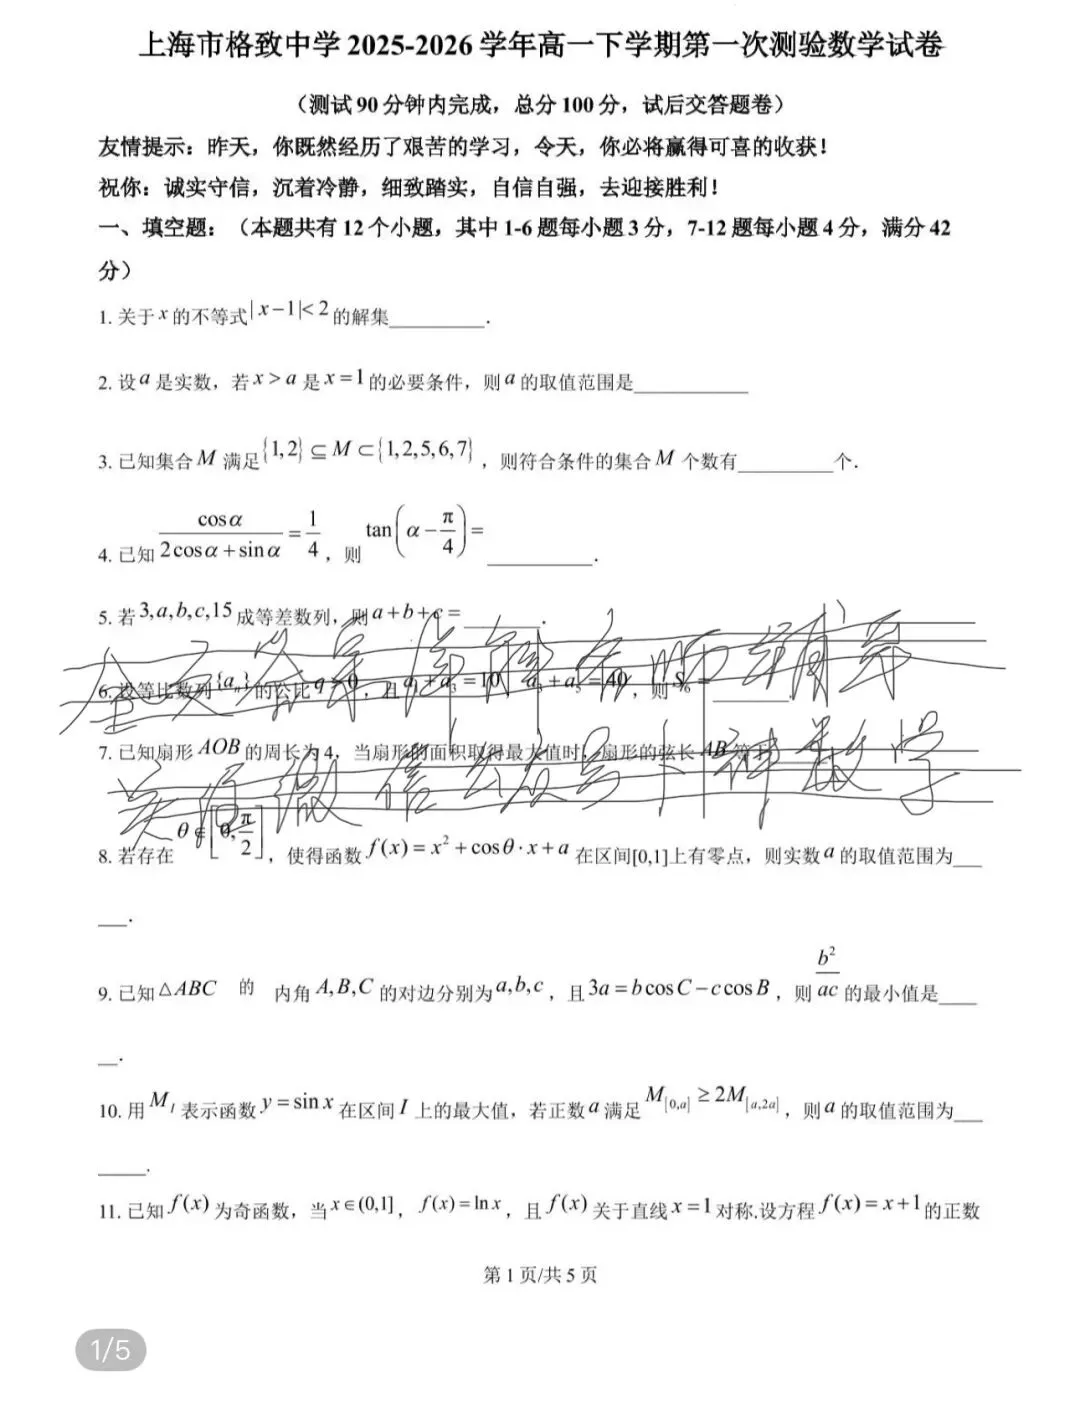 上海市格致中学 2025-2026 学年高一下学期第一次测验数学试卷
（测试 90 分钟内完成，总分 100 分，试后交答题卷）
友情提示：昨天，你既然经历了艰苦的学习，令天，你必将赢得可喜的收获！
祝你：诚实守信，沉着冷静，细致踏实，自信自强，去迎接胜利！
一、填空题：（本题共有 12 个小题，其中 1-6 题每小题 3 分，7-12 题每小题 4 分，满分 42
分）
1. 关于 x 的不等式 |x−1|<2 的解集__________.
2. 设 a 是实数，若 x > a 是 x = 1 的必要条件，则 a 的取值范围是____________
3. 已知集合 M 满足 {1,2} ⊆ M ⊂ {1,2,5,6,7}，则符合条件的集合 M 个数有__________个.
4. 已知 cosα/(2cosα + sinα) = 1/4，则 tan(α − π/4) = ___________.
5. 若 3,a,b,c,15 成等差数列，则 a+b+c = ________.
6. 设等比数列 {aₙ} 的公比 q > 0，且 a₁ + a₃ = 10，a₃ + a₅ = 40，则 S₆ = ________.
7. 已知扇形 AOB 的周长为 4，当扇形的面积取得最大值时，扇形的弦长 AB 等于
全文答案
关注微信公众号
神数学
8. 若存在 θ ∈ [0, π/2]，使得函数 f(x) = x² + cosθ·x + a 在区间[0,1]上有零点，则实数 a 的取值范围为___
___.
9. 已知 △ABC 的 内角 A,B,C 的对边分别为 a,b,c，且 3a = b cos C − c cos B，则 b²/ac 的最小值是____
__.
10. 用 M_I 表示函数 y = sin x 在区间 I 上的最大值，若正数 a 满足 M_[0,a] ≥ 2M_[a,2a]，则 a 的取值范围为___
_____.
11. 已知 f(x) 为奇函数，当 x ∈ (0,1]，f(x) = ln x，且 f(x) 关于直线 x = 1 对称.设方程 f(x) = x+1 的正数
第 1 页/共 5 页
1/5